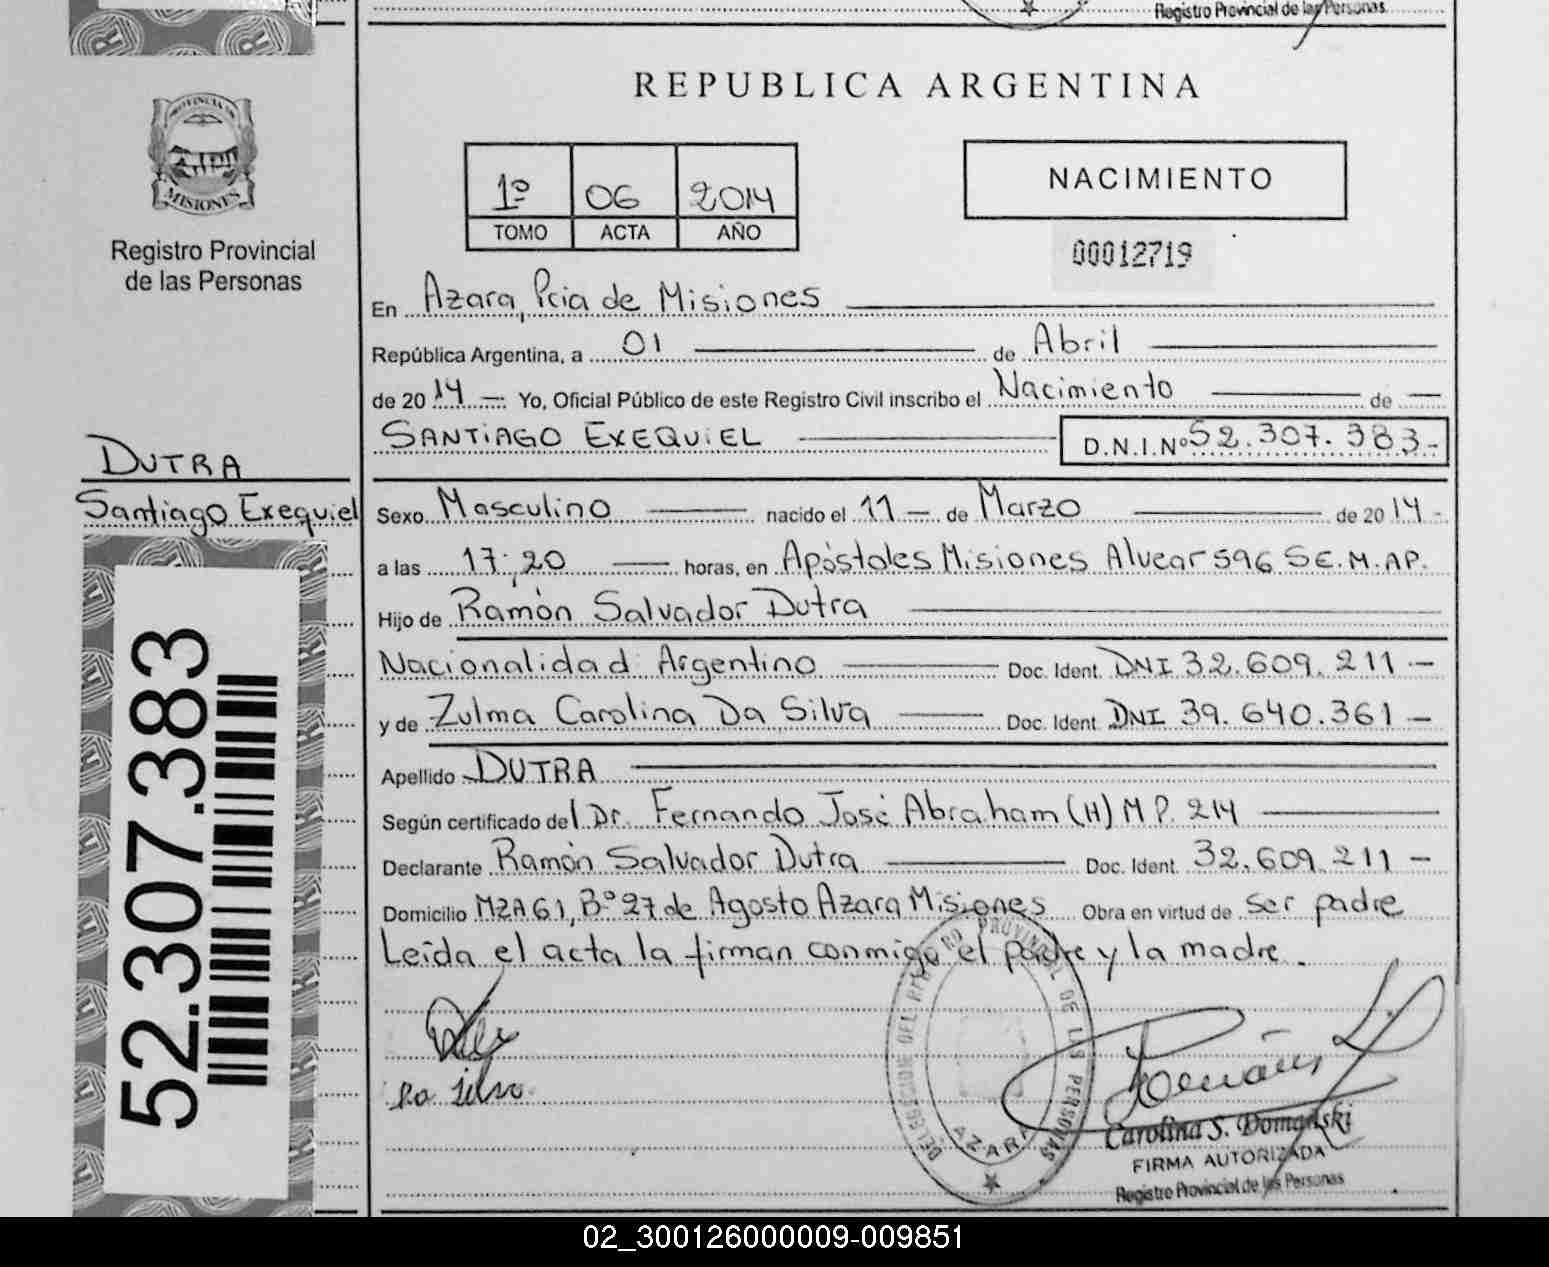 Registro Provincial de las Personas
PROVINCIA DE
MISIONES
Registro Provincial
de las Personas
REPUBLICA ARGENTINA
1º 06 2014
TOMO ACTA AÑO
NACIMIENTO
00012719
En Azara, Pcia de Misiones
República Argentina, a 01 de Abril
de 2014 — Yo, Oficial Público de este Registro Civil inscribo el Nacimiento de —
SANTIAGO EXEQUIEL D.N.I.Nº 52.307.383-
DUTRA
Santiago Exequiel
Sexo Masculino nacido el 11 — de Marzo de 2014-
a las 17:20 horas, en Apóstoles Misiones Alvear 596 SE.M.AP.
Hijo de Ramón Salvador Dutra
Nacionalidad Argentino Doc. Ident. DNI 32.609.211 —
y de Zulma Carolina Da Silva Doc. Ident. DNI 39.640.361 —
Apellido DUTRA
Según certificado del Dr. Fernando José Abraham (H) M P. 214
Declarante Ramón Salvador Dutra Doc. Ident. 32.609.211 —
Domicilio MZA 61, Bº 27 de Agosto Azara Misiones Obra en virtud de ser padre
Leída el acta la firman conmigo el padre y la madre.
52.307.383
DELEGACION DEL REGISTRO PROVINCIAL DE LAS PERSONAS
AZARA
Carolina S. Domański
FIRMA AUTORIZADA
Registro Provincial de las Personas
02_300126000009-009851